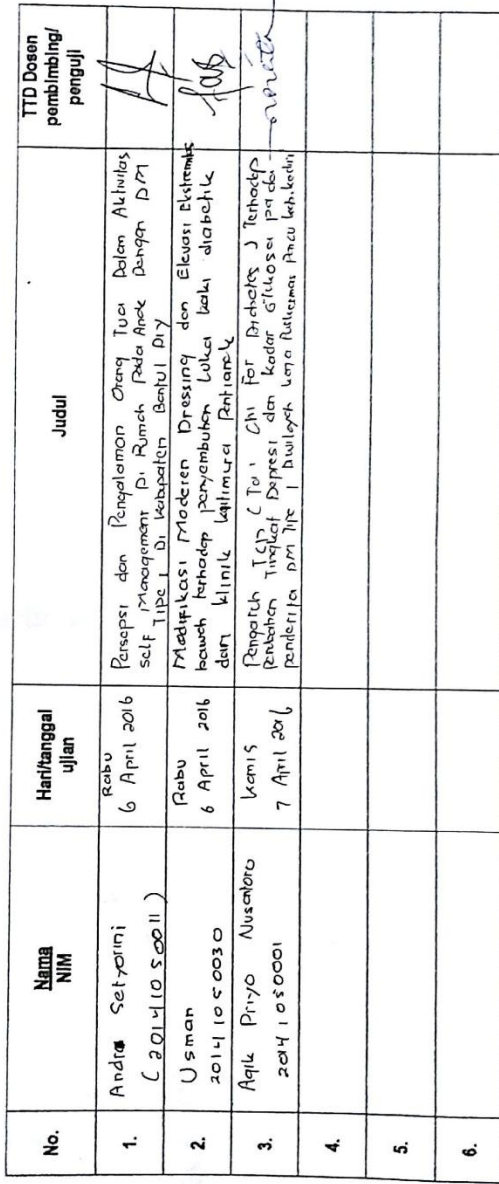 No.
Nama
NIM
Hari/tanggal
ujian
Judul
TTD Dosen
pembimbing/
penguji
1.
Andra Setyorini
(20141050011)
Rabu
6 April 2016
Persepsi dan Pengalaman Orang Tua Dalam Aktivitas
self Management Di Rumah Pada Anak Dengan DM
Tipe 1 Di Kabupaten Bantul DIY
2.
Usman
20141050030
Rabu
6 April 2016
Modifikasi Moderen Dressing dan Elevasi Ekstremitas
bawah terhadap penyembuhan Luka kaki diabetik
dam klinik kitamura Pontianak
3.
Agik Priyo Nusantoro
20141050001
Kamis
7 April 2016
Pengaruh TCD (Tai Chi For Diabetes) Terhadap
Perubahan Tingkat Depresi dan kadar Glukosa pada
penderita DM Tipe 1 Diwilayah kerja Puskesmas
4.
5.
6.